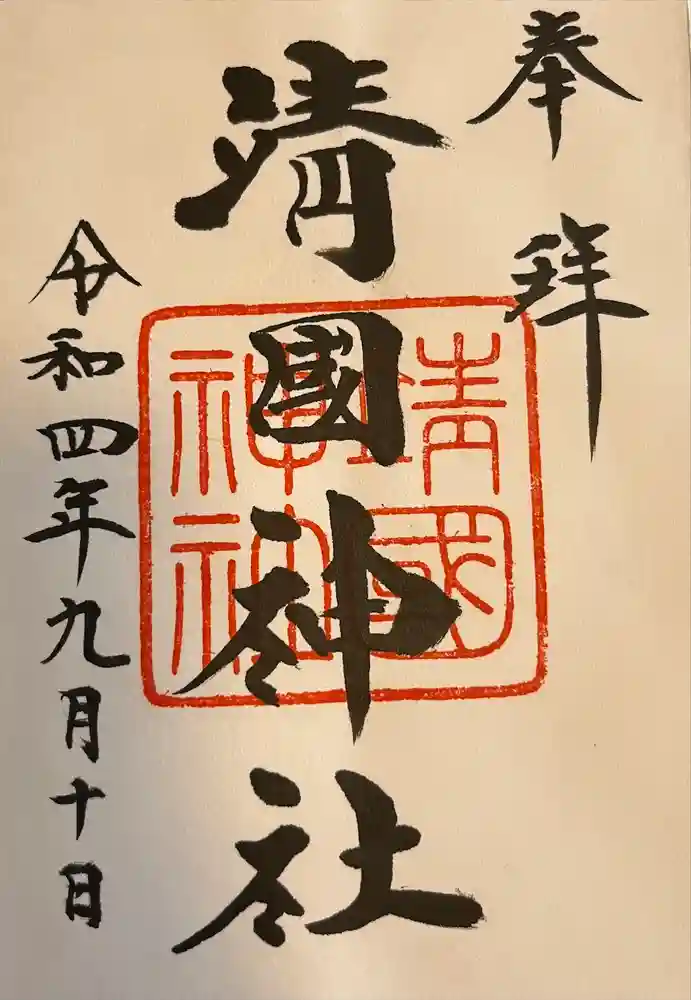 奉拝
靖國神社
令和四年九月十日
靖國
神社